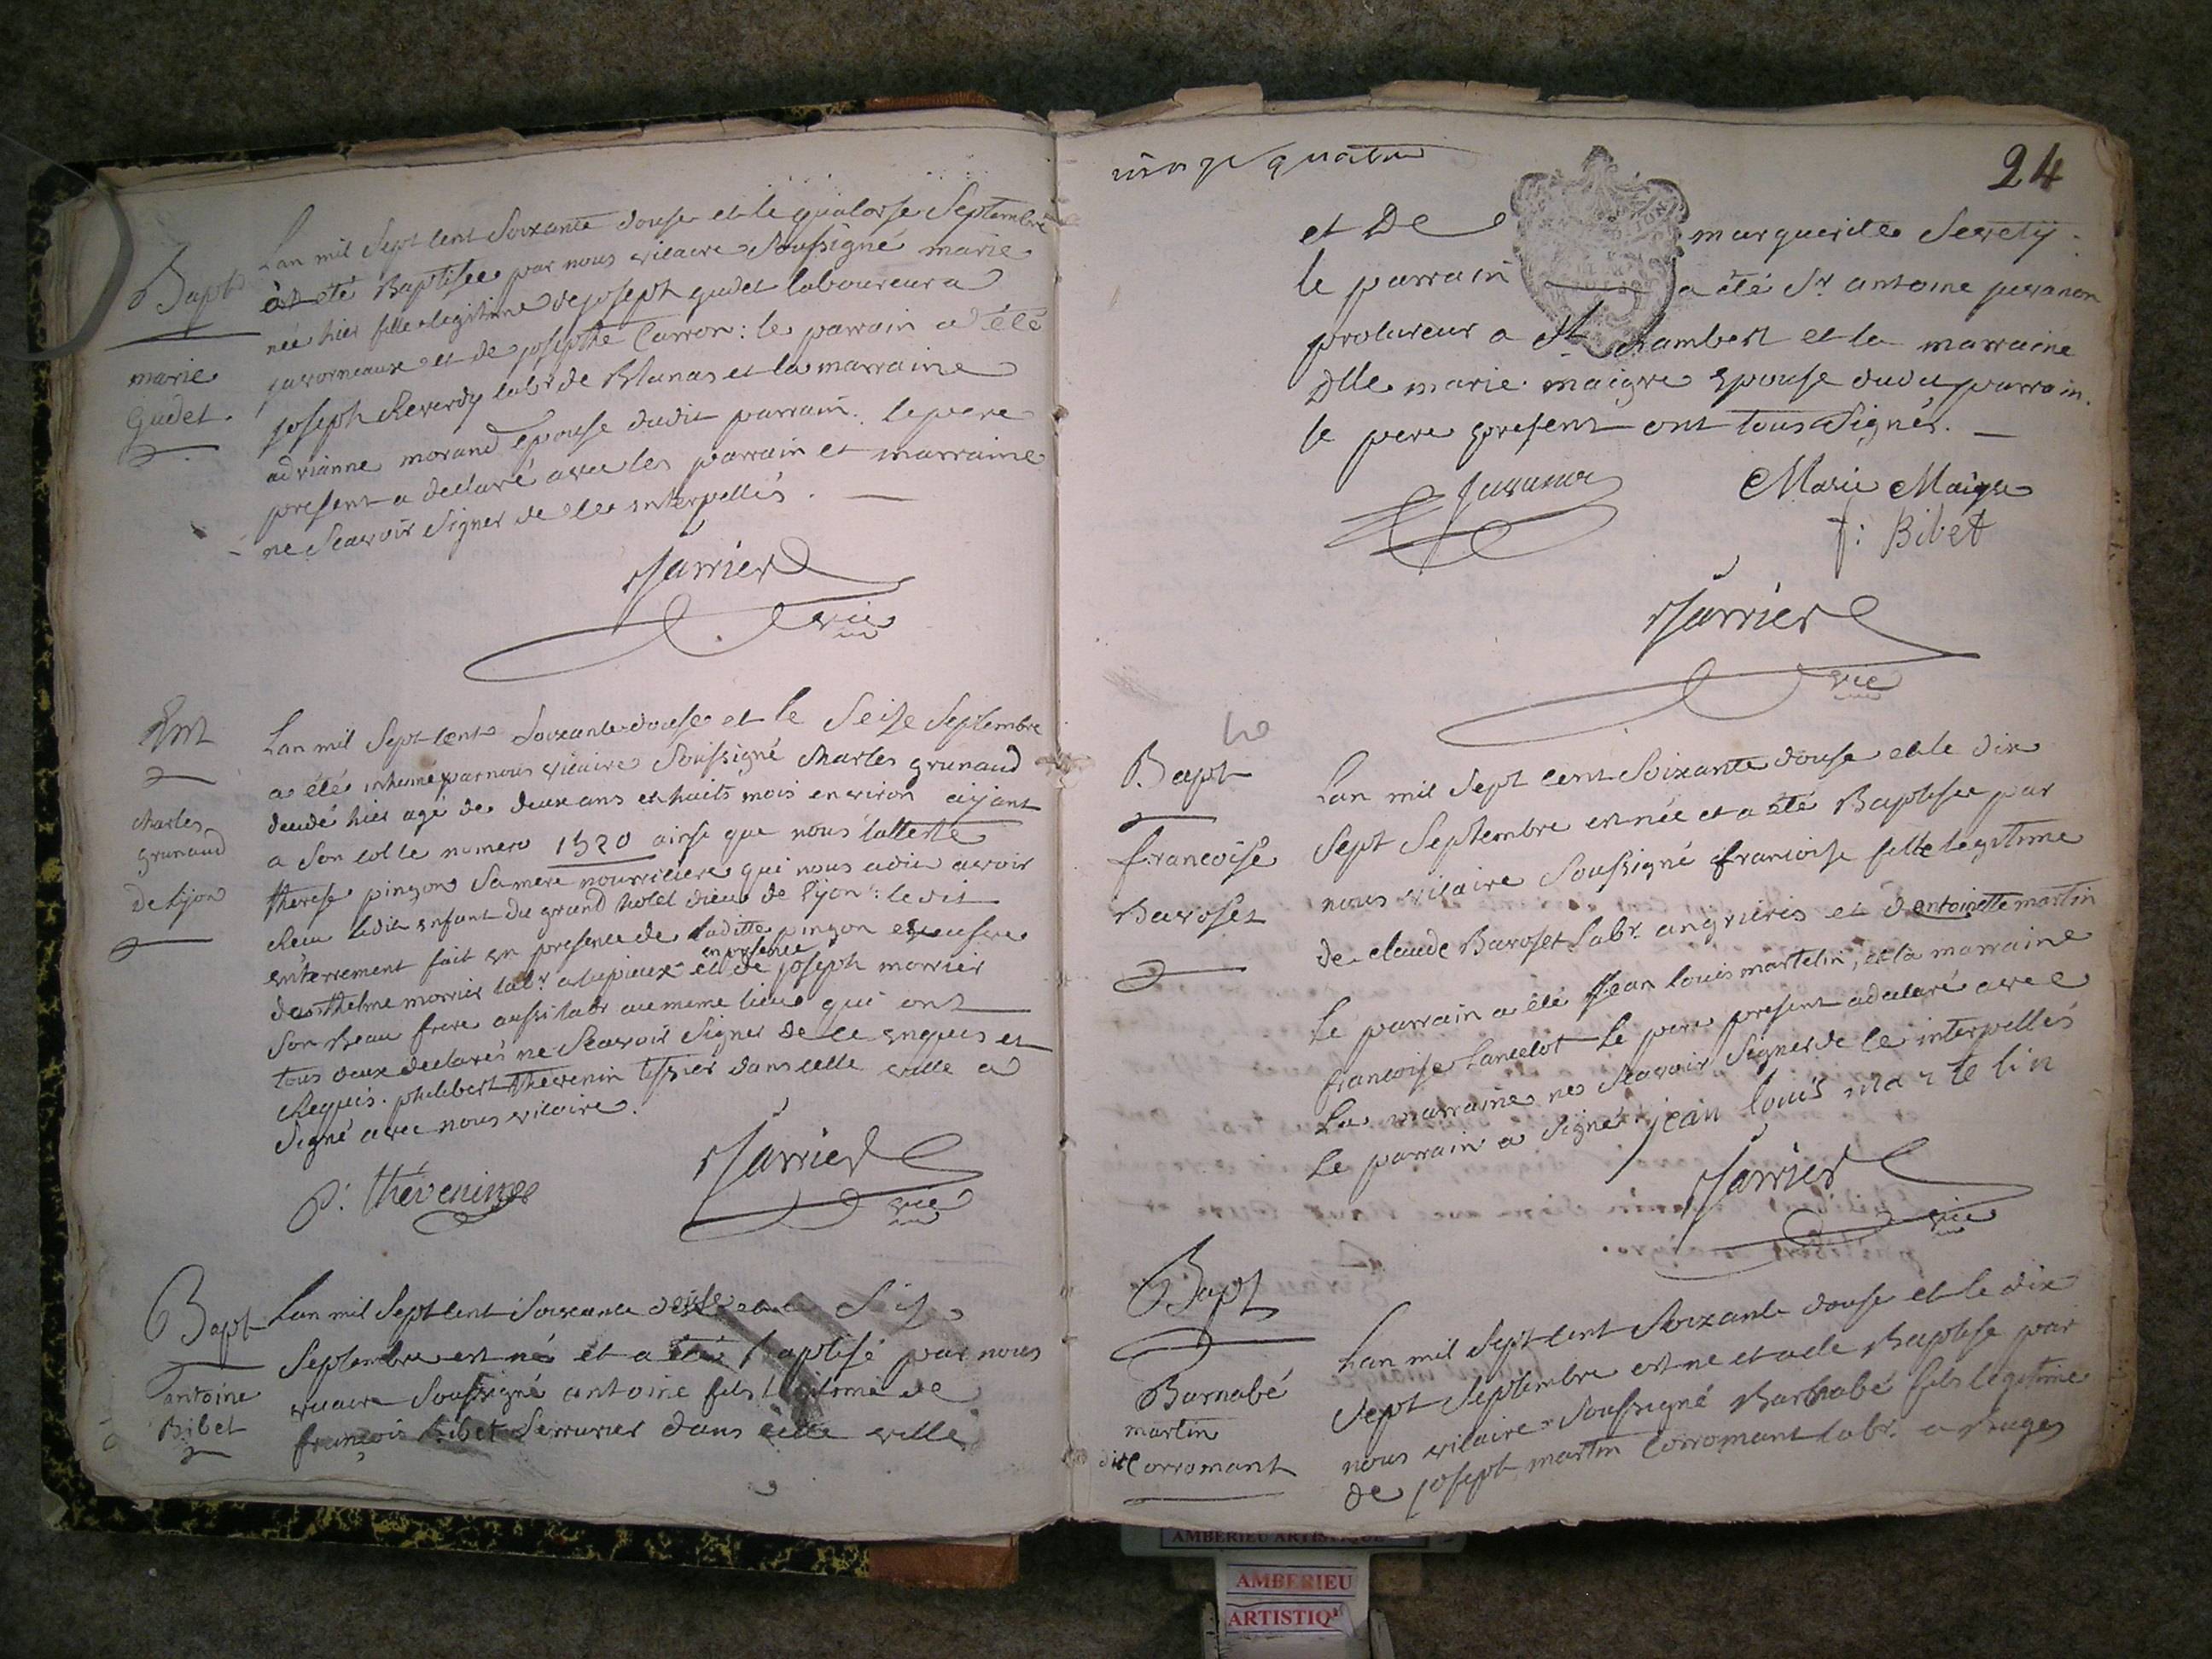 Bapt
marie
Gudet.
Lan mil Sept cent Soixante douse et le quatorse Septembre
a eté Baptisée par nous vicaire Soussigné marie
née hier fille legitime de joseph gudet laboureur a
javorneaux et de josephte Carron: le parrain a été
joseph Reverdy labr de Blanas et la marraine
adrianne morand epouse dudit parrain. le pere
present a declaré avec les parrain et marraine
ne Scavoir Signer de ce interpellés.
Jarrier
vic
Ent
charles
grunaud
de lyon
Lan mil Sept cent Soixante douse et le Seize Septembre
a été inhumé par nous vicaire Soussigné charles grunaud
decedé hier agé de deux ans et huits mois environ aijant
a Son colle numero 1520 ainsi que nous latteste
therese pinçon Sa mere nourriciere qui nous a dit avoir
Reçu ledit enfant du grand hotel dieu de lyon: le dit
enterrement fait en presence de laditte pinçon
en presence
morrier labr a et de joseph morrier
Son Beau frere aussi labr au meme lieu qui ont
tous deux declarés ne Scavoir Signer de ce enquis et
Requis. philibert thevenin tissier dans cette ville a
Signé avec nous vicaire.
P: thevenin
Jarrier
vic
Bapt
antoine
Bibet
Lan mil Sept cent Soixante douse et le Seize
Septembre est né et a été Baptisé par nous
vicaire Soussigné antoine fils legitime de
françois Bibet Serrurier dans cette ville
vingt quatre
24
et De marguerite Severty.
le parrain a été Sr antoine juvanon
procureur a St Rambert et la marraine
Dlle marie maigre epouse dudit parrain.
le pere present ont tous Signés.
juvanon
Marie Maigre
f: Bibet
Jarrier
vic
Bapt
francoise
Bavoset
Lan mil Sept cent Soixante douse et le dix
Sept Septembre est née et a été Baptisée par
nous vicaire Soussigné francoise fille legitime
de claude Bavoset labr. angrieres et dantoinette martin
Le parrain a été jean louis martelin, et la marraine
francoise Lancelot Le pere present a declaré avec
La marraine ne Scavoir Signer de ce interpellés
Le parrain a Signé. jean louis martelin
Jarrier
vic
Bapt
Barnabé
martin
dit Corromant
Lan mil Sept cent Soixante douse et le dix
Sept Septembre est né et a été Baptisé par
nous vicaire Soussigné Barnabé fils legitime
de joseph martin Corromant labr. a Breges
AMBERIEU ARTISTIQUE
AMBERIEU
ARTISTIQ